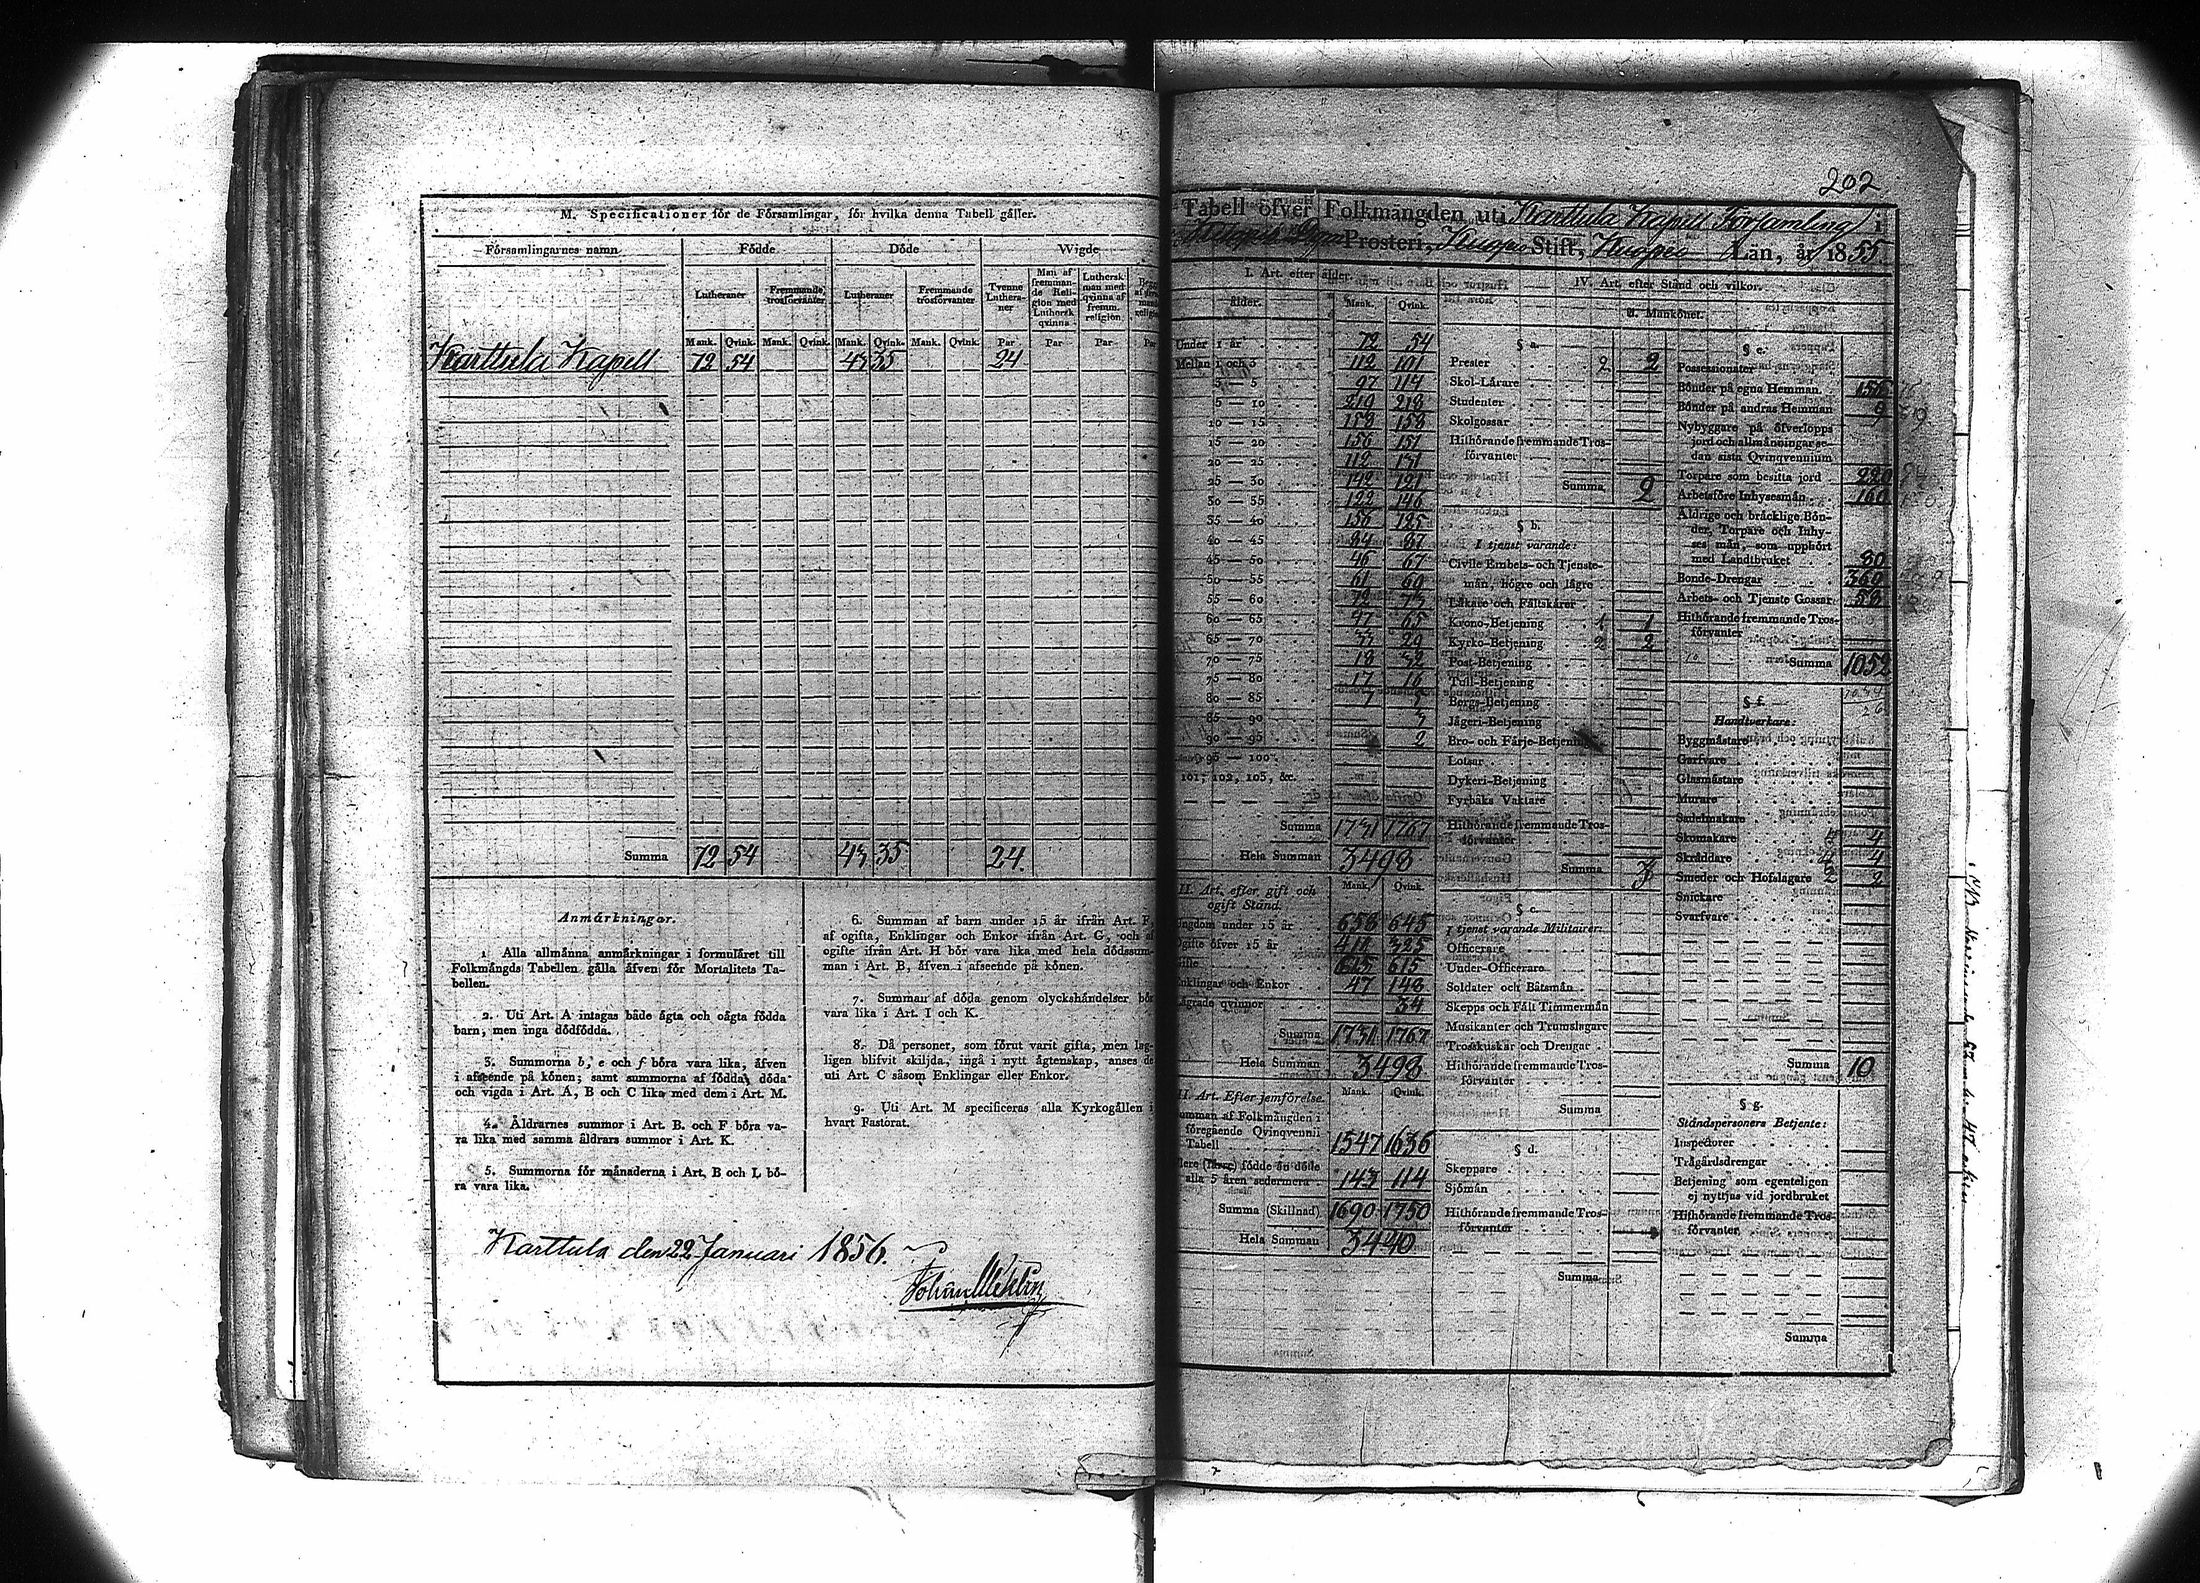 M. Specificationer för de Församlingar, för hvilka denna Tabell gäller.
Församlingarnes namn
Födde
Döde
Wigde
Lutheraner
Fremmande trosförvanter
Lutheraner
Fremmande trosförvanter
Tvenne Luthera-ner
Man af fremman-de Reli-gion med Luthersk qvinna
Luthersk man med qvinna af fremm. religion.
Mank. Qvink. Mank. Qvink. Mank. Qvink. Mank. Qvink. Par Par Par
Karttula Kapell 72 54 43 35 24
Summa 72 54 43 35 24.
Anmärkningar.
1. Alla allmänna anmärkningar i formuläret till
Folkmängds Tabellen gälla äfven för Mortalitets Ta-
bellen.
2. Uti Art. A intagas både ägta och oägta födda
barn, men inga dödfödda.
3. Summorna b, e och f böra vara lika, äfven
i afseende på könen; samt summorna af födda, döda
och vigda i Art. A, B och C lika med dem i Art. M.
4. Åldrarnes summor i Art. B. och F böra va-
ra lika med samma åldrars summor i Art. K.
5. Summorna för månaderna i Art. B och L bö-
ra vara lika.
6. Summan af barn under 15 år ifrån Art. F.
af ogifta, Enklingar och Enkor ifrån Art. G. och af
ogifte ifrån Art. H bör vara lika med hela dödssum-
man i Art. B, äfven i afseende på könen.
7. Summan af döda genom olyckshändelser bör
vara lika i Art. I och K.
8. Då personer, som förut varit gifta, men lag-
ligen blifvit skiljda, ingå i nytt ägtenskap, anses de
uti Art. C såsom Enklingar eller Enkor.
9. Uti Art. M specificeras alla Kyrkogällen i
hvart Pastorat.
Karttula den 22 Januari 1856.
202
Tabell öfver Folkmängden uti Karttula Kapell Församling i
Prosteri, Kuopio Stift, Kuopio Län, år 1855
I. Art. efter ålder.
ålder. Mank. Qvink.
Under 1 år 72 54
Mellan 1 och 3 112 101
3 — 5 97 114
5 — 10 219 218
10 — 15 158 158
15 — 20 156 151
20 — 25 112 131
25 — 30 142 121
30 — 35 122 146
35 — 40 156 125
40 — 45 84 87
45 — 50 46 67
50 — 55 61 60
55 — 60 72 73
60 — 65 47 65
65 — 70 33 29
70 — 75 18 32
75 — 80 17 16
80 — 85 7
85 — 90
90 — 95 2
95 — 100
101, 102, 103, &c.
Summa 1731 1767
Hela Summan 3498
II. Art. efter gift och
ogift Stånd. Mank. Qvink.
Ungdom under 15 år 658 645
Ogifte öfver 15 år 411 325
Gifte 615 615
Enklingar och Enkor 47 148
Lägrade qvinnor 34
Summa 1731 1767
Hela Summan 3498
III. Art. Efter jemförelse. Mank. Qvink.
Summan af Folkmängden i
föregående Qvinqvennii
Tabell 1547 1636
Flere födde än döde
alla 5 åren sedermera 143 114
Summa (Skillnad) 1690 1750
Hela Summan 3440
IV. Art. efter Stånd och vilkor.
Mankönet.
§ a.
Prester 2 2
Skol-Lärare
Studenter
Skolgossar
Hithörande fremmande Tros-
förvanter
Summa 2
§ b.
I tjenst varande:
Civile Embets- och Tjenste-
män, högre och lägre
Läkare och Fältskärer
Krono-Betjening 1 1
Kyrko-Betjening 2 2
Post-Betjening
Tull-Betjening
Bergs-Betjening
Jägeri-Betjening
Bro- och Färje-Betjening
Lotsar
Dykeri-Betjening
Fyrbåks Vaktare
Hithörande fremmande Tros-
förvanter
Summa 3
§ c.
I tjenst varande Militairer:
Officerare
Under-Officerare
Soldater och Båtsmän
Skepps och Fält Timmermän
Musikanter och Trumslagare
Trosskuskar och Drengar
Hithörande fremmande Tros-
förvanter
Summa
§ d.
Skeppare
Sjömän
Hithörande fremmande Tros-
förvanter
Summa
§ e.
Possessionater
Bönder på egna Hemman
Bönder på andras Hemman 9
Nybyggare på öfverlopps
jord och allmänningar se-
dan sista Qvinqvennium
Torpare som besitta jord 220
Arbetsföre Inhysesmän 160
Åldrige och bräcklige Bön-
der, Torpare och Inhy-
ses män, som upphört
med Landtbruket 80
Bonde-Drengar 360
Arbets- och Tjenste Gossar 58
Hithörande fremmande Tros-
förvanter
Summa 1052
§ f.
Handtverkare:
Byggmästare
Garfvare
Glasmästare
Murare
Sadelmakare
Skomakare 4
Skräddare 4
Smeder och Hofslagare 2 2
Snickare
Svarfvare
Summa 10
§ g.
Ståndspersoners Betjente:
Inspectorer
Trägårdsdrengar
Betjening som egenteligen
ej nyttjas vid jordbruket
Hithörande fremmande Tros-
förvanter
Summa